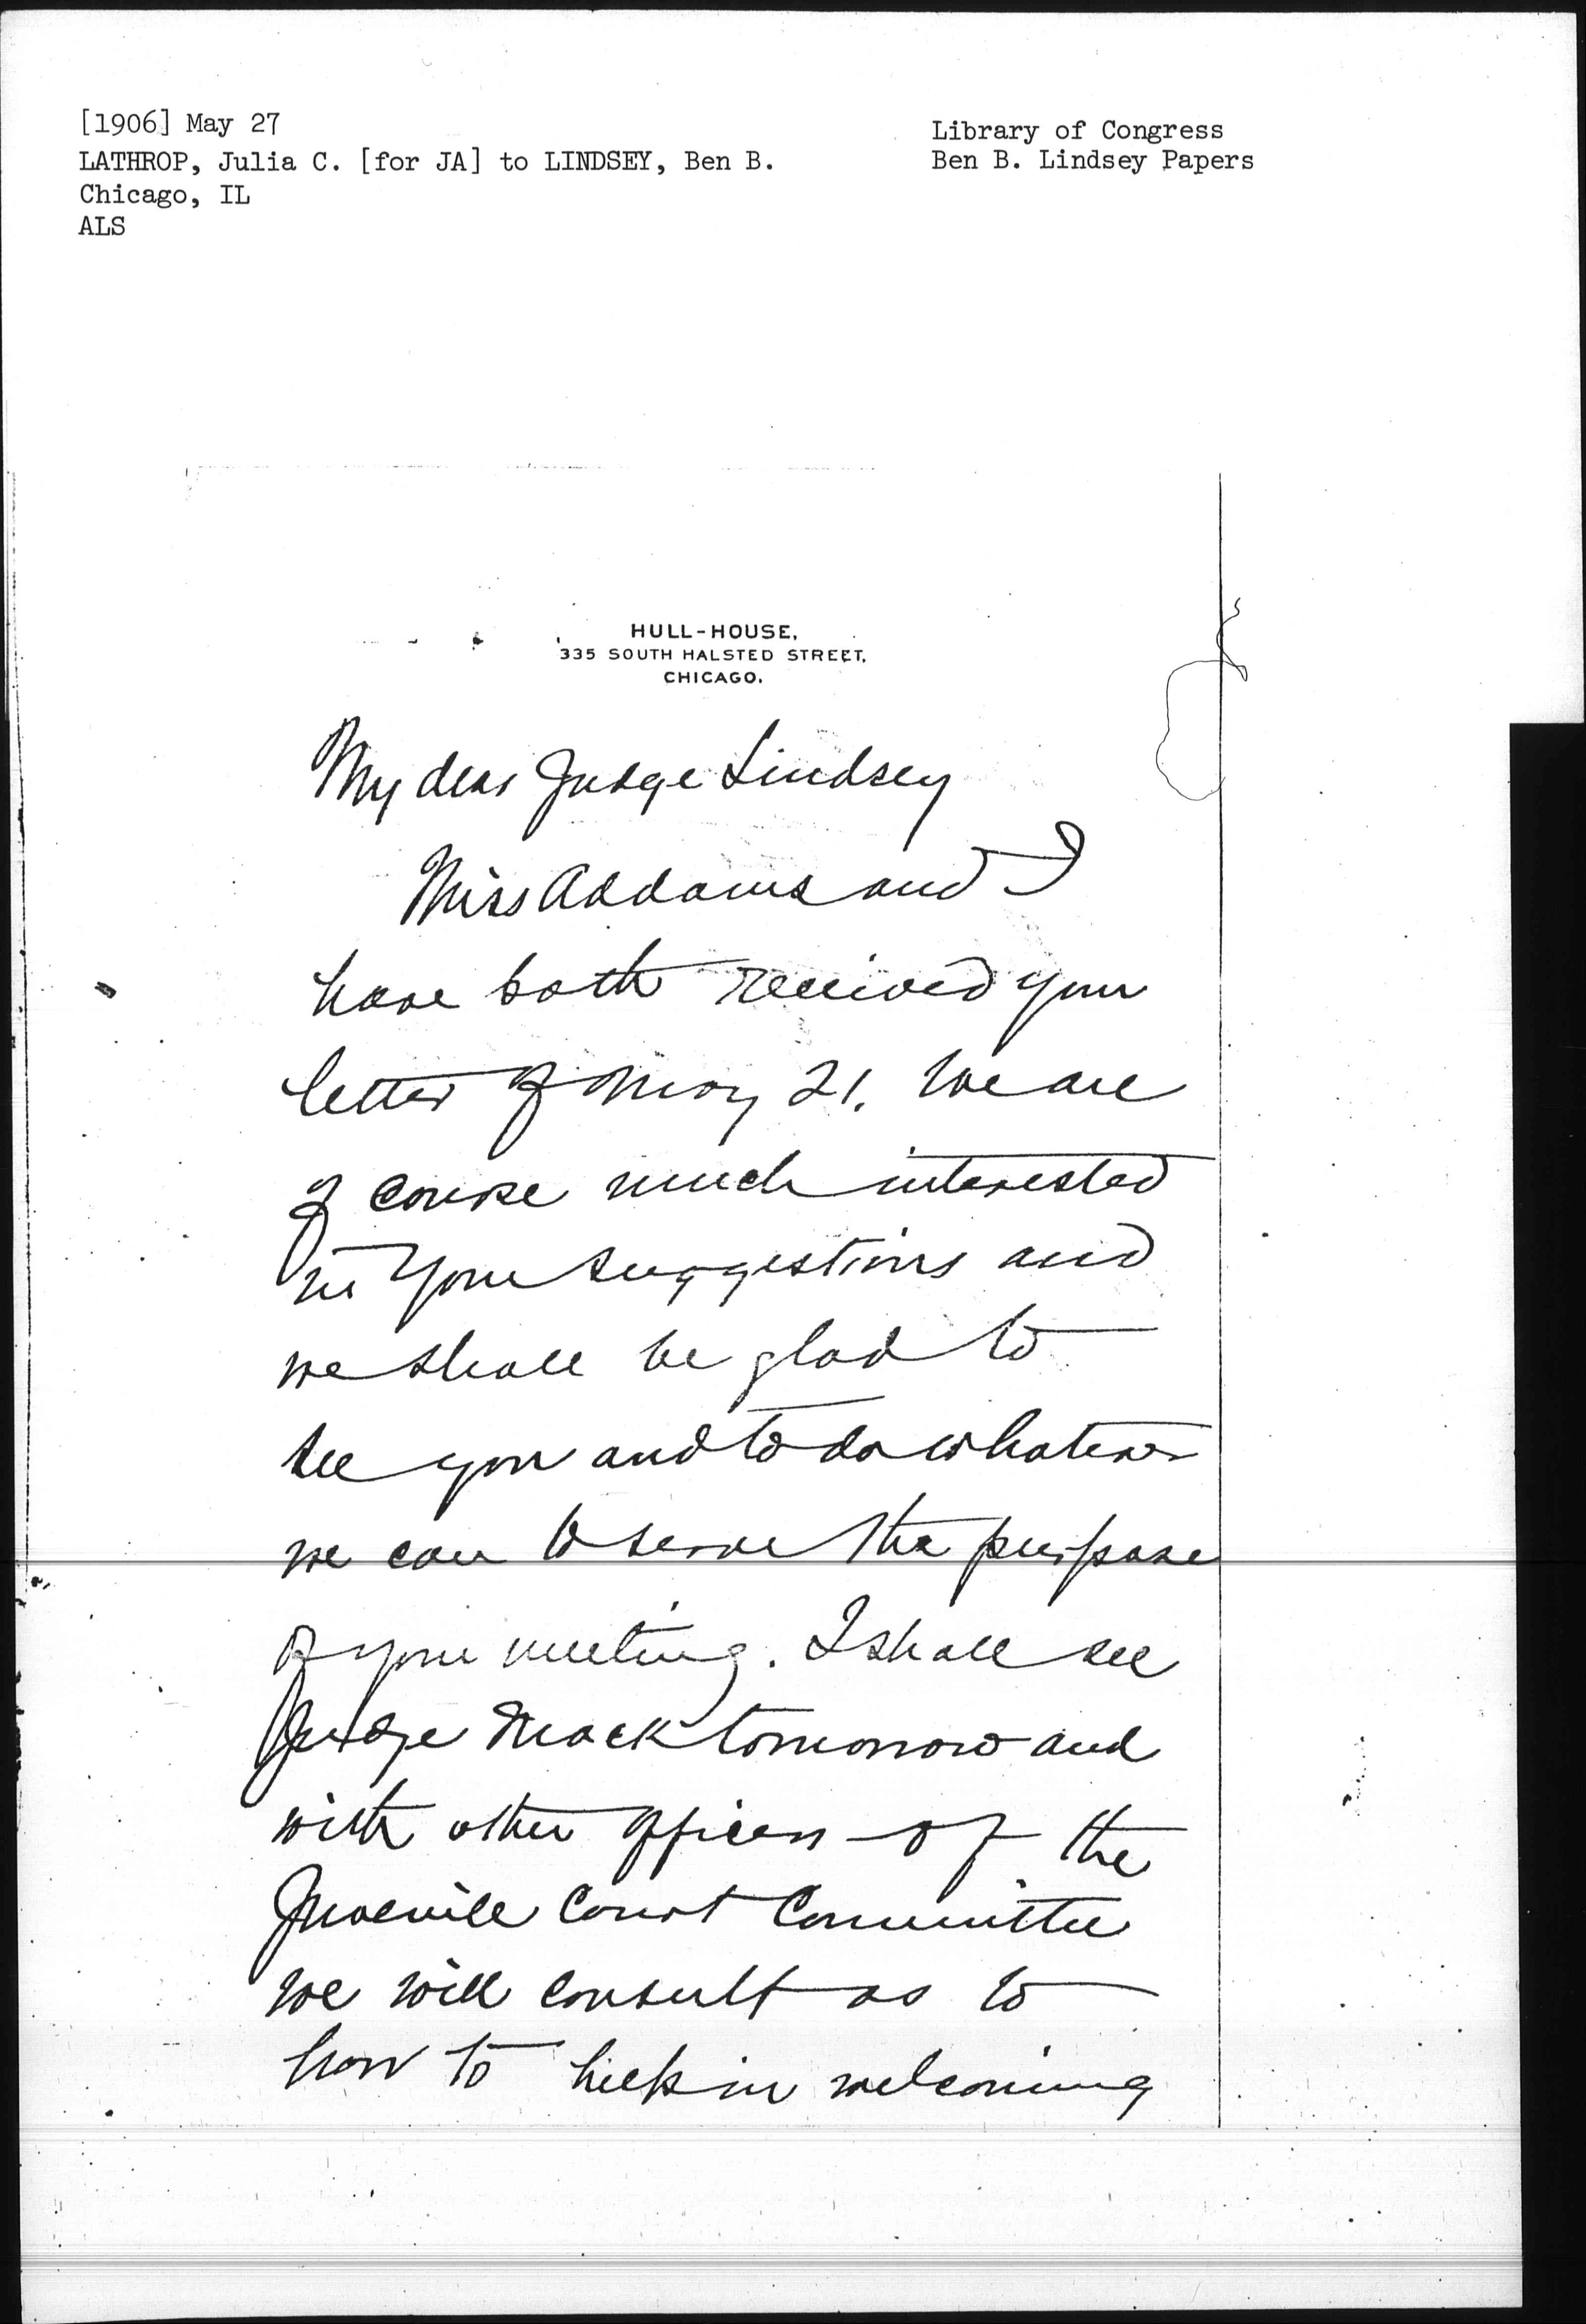 [1906] May 27
LATHROP, Julia C. [for JA] to LINDSEY, Ben B.
Chicago, IL
ALS
Library of Congress
Ben B. Lindsey Papers
HULL-HOUSE,
335 SOUTH HALSTED STREET,
CHICAGO.
My dear Judge Lindsey
Miss Addams and I
have both received your
letter of May 21. We are
of course much interested
in your suggestions and
we shall be glad to
see you and to do whatever
we can to serve the purpose
of your meeting. I shall see
Judge Mack tomorrow and
with other officers of the
Juvenile Court Committee
we will consult as to
how to help in welcoming